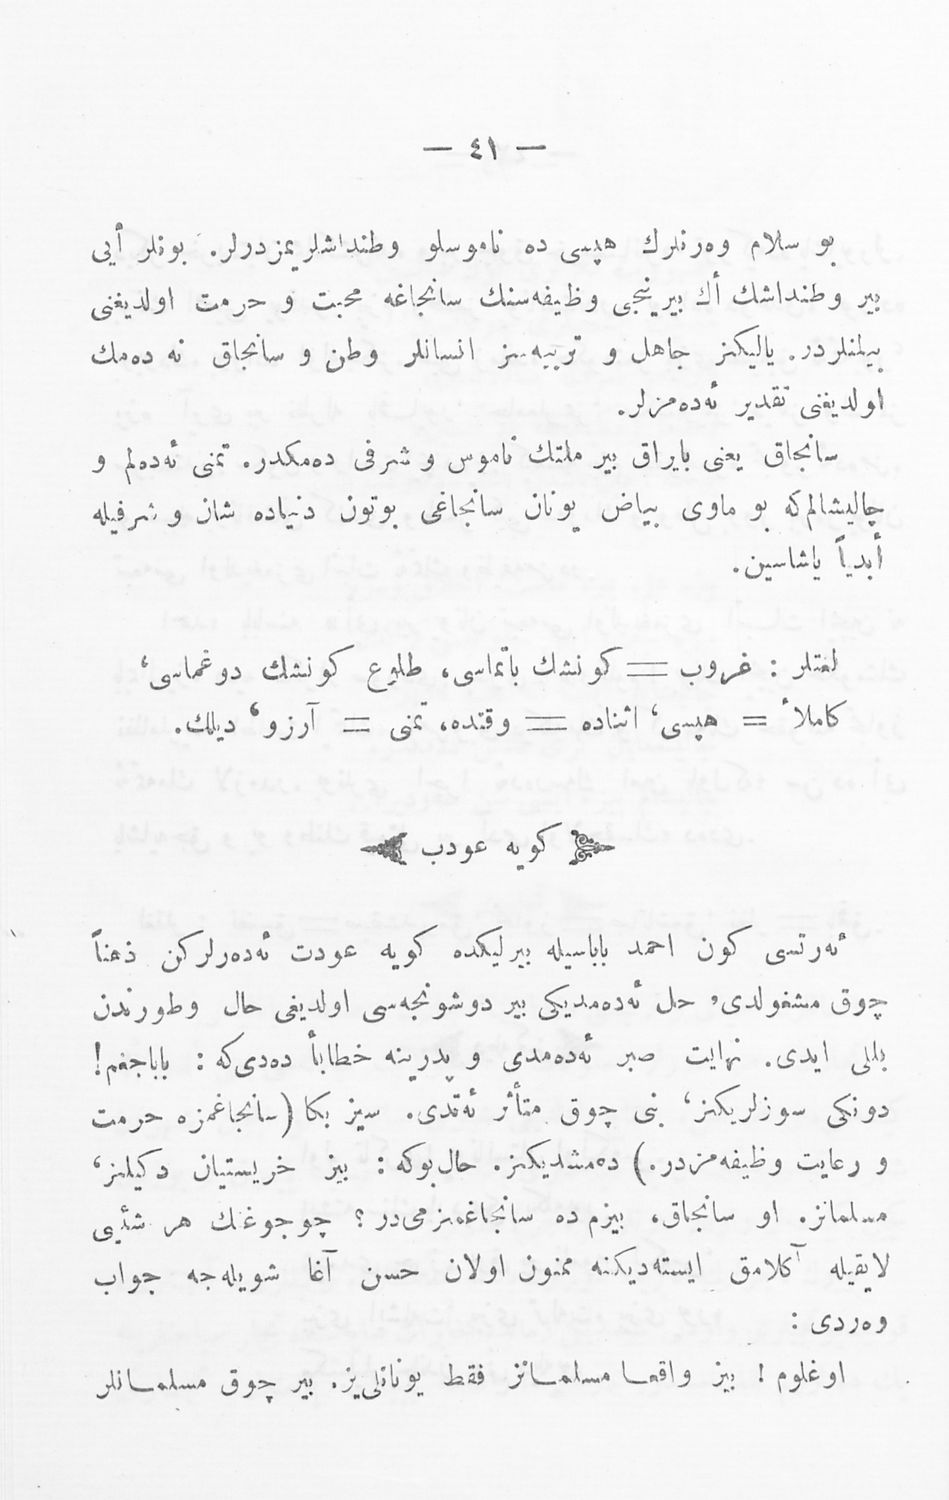 — ٤١ —
بو سلام وه‌رنلرك هپسی ده ناموسلو وطنداشلریمزدرلر. بونلر أیی
بیر وطنداشك أك بیرینجی وظیفه‌سنك سانجاغه محبت و حرمت اولدیغنی
بیلنلردر. یالیكنز جاهل و تربیه‌سز انسانلر وطن و سانجاق نه ده‌مك
اولدیغنی تقدیر ئه‌ده‌مزلر.
سانجاق یعنی بایراق بیر ملتك ناموس و شرفی ده‌مكدر. تمنی ئه‌ده‌لم و
چالیشالم‌كه بو ماوی بیاض یونان سانجاغی بوتون دنیاده شان و شرفیله
أبدیاً یاشاسین.
لغتلر : غروب = كونشك باتماسی، طلوع كونشك دوغماسی،
كاملاً = هپسی، اثناده = وقتده، تمنی = آرزو، دیلك.
كویه عودب
ئه‌رتسی كون احمد باباسیله بیرلیكده كویه عودت ئه‌ده‌رلركن ذهناً
چوق مشغولدی، حل ئه‌ده‌مدیكی بیر دوشونجه‌سی اولدیغی حال وطورندن
بللی ایدی. نهایت صبر ئه‌ده‌مدی و پدرینه خطاباً ده‌دی‌كه : باباجغم!
دونكی سوزلریكنز، بنی چوق متأثر ئه‌تدی. سیز بكا (سانجاغمزه حرمت
و رعایت وظیفه‌مزدر.) ده‌مشدیكنز. حال‌بوكه : بیز خریستیان دكیلنز،
مسلمانز. او سانجاق، بیزم ده سانجاغمزمی‌در ؟ چوجوغك هر شئیی
لایقیله آكلامق ایسته‌دیكنه ممنون اولان حسن آغا شویله‌جه جواب
وه‌ردی :
اوغلوم ! بیز واقعا مسلمانز فقط یونانلی‌یز. بیر چوق مسلمانلر